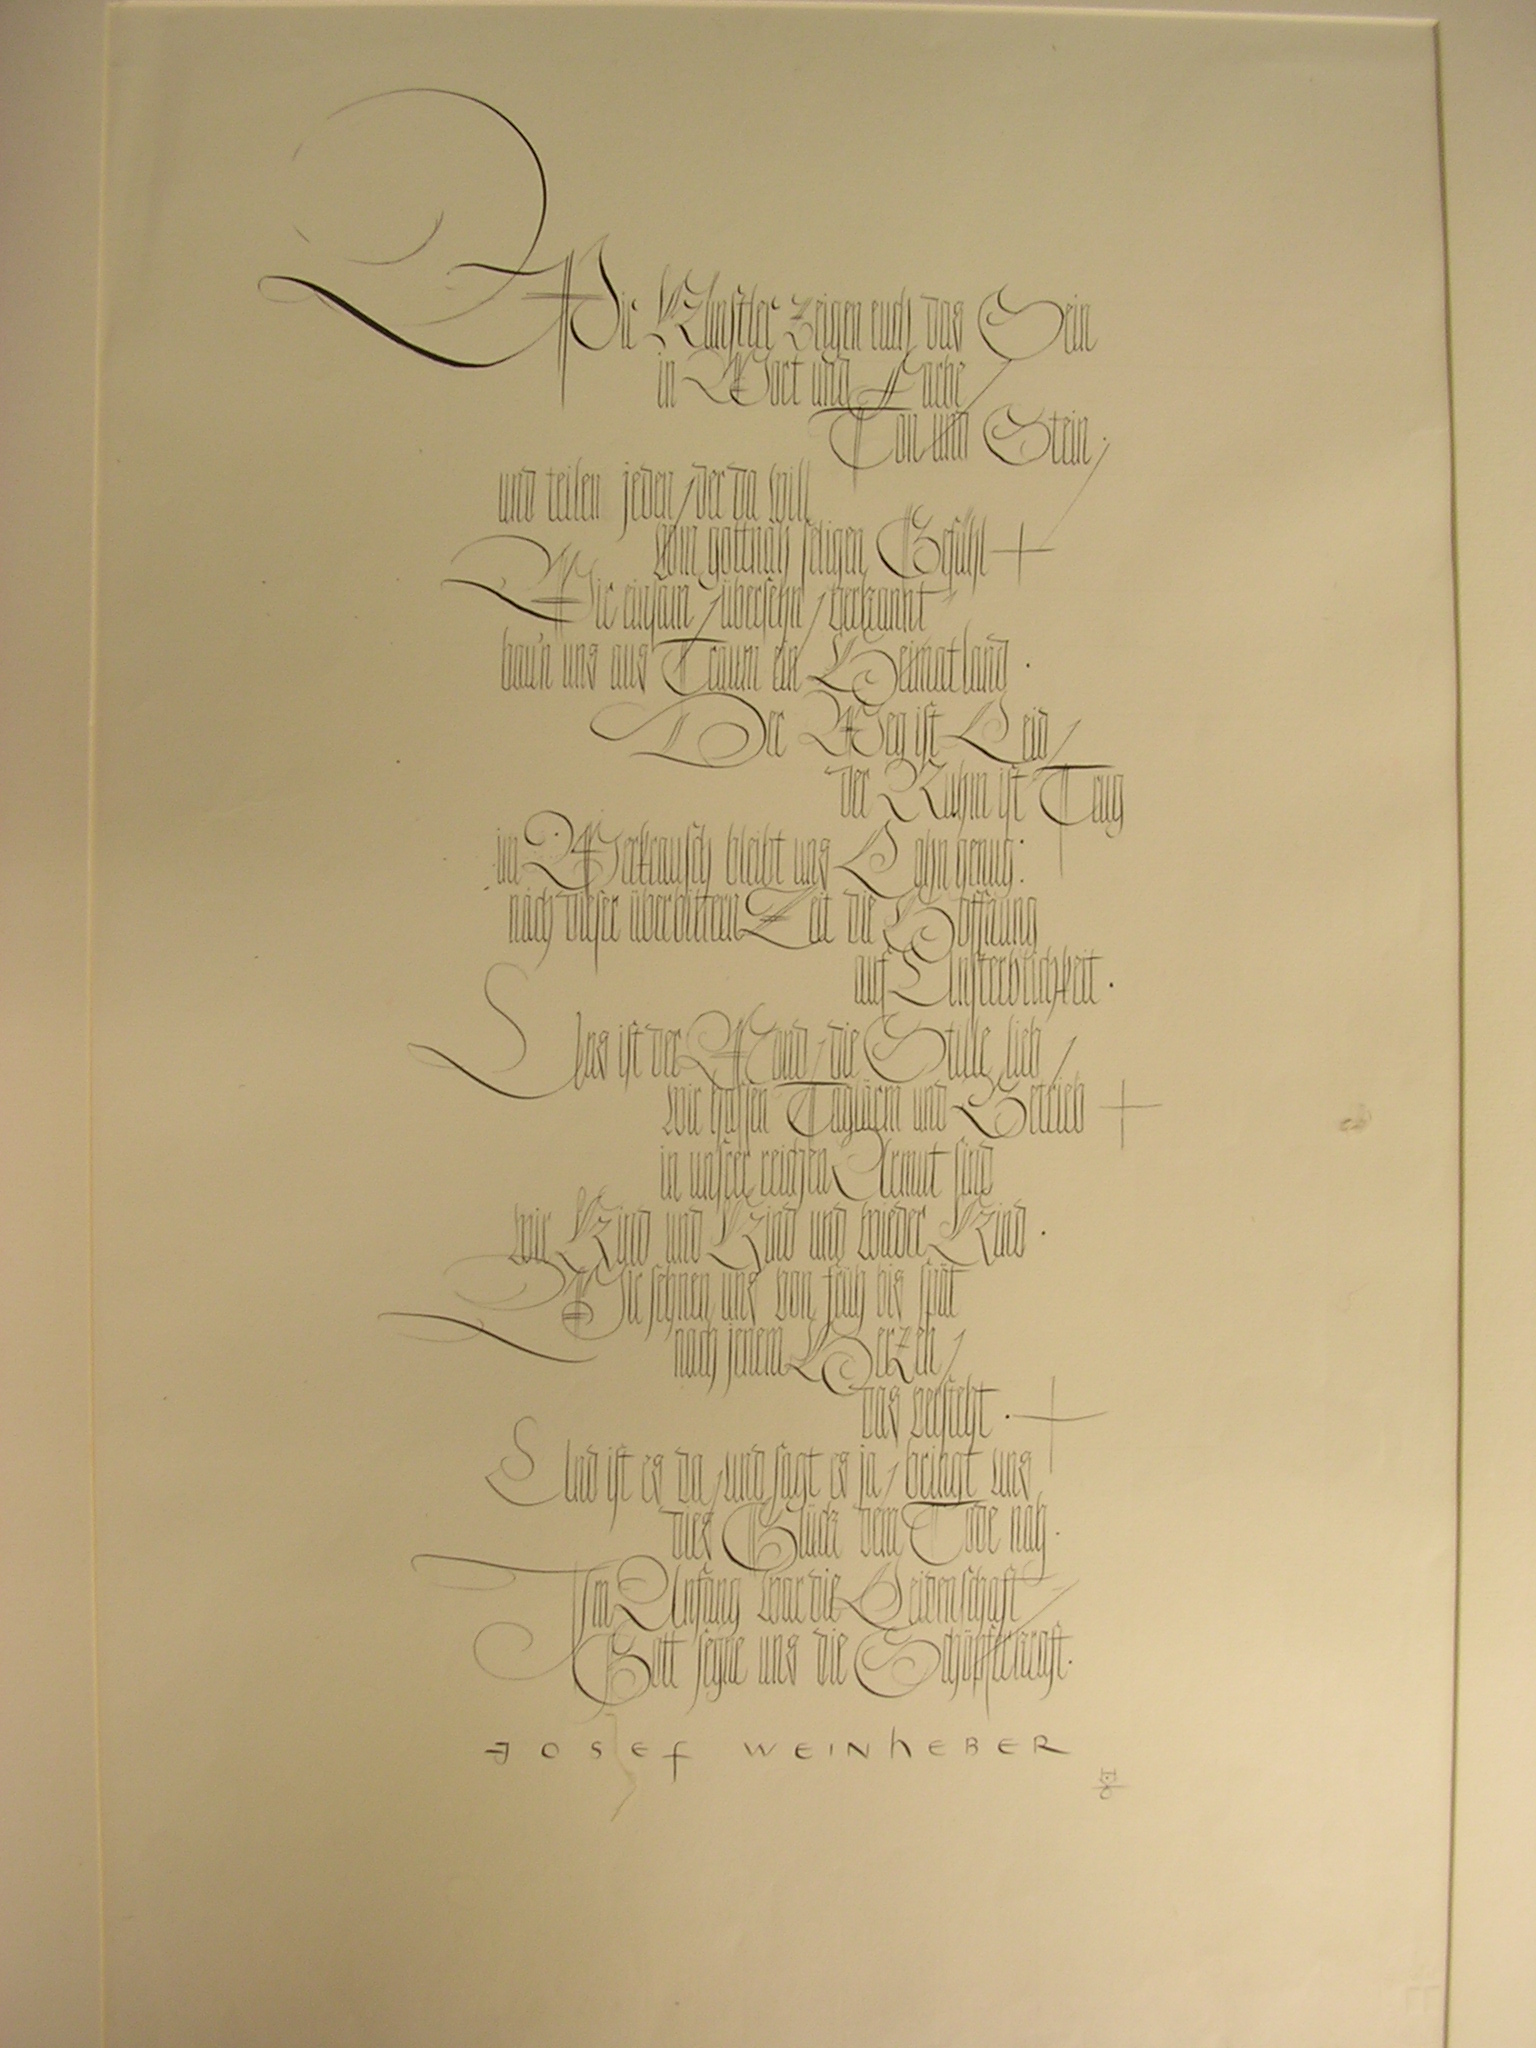 Wir Künstler zeigen euch das Sein
in Wort und Farbe
Ton und Stein,
und teilen jeden, der da will
vom gottnah seligen Gefühl
Wir einsam, übersehn, verkannt
bau'n uns aus Traum ein Heimatland.
Der Weg ist Leid,
der Ruhm ist Trug
im Werkrausch bleibt uns Lohn genug:
nach dieser überbittern Zeit die Hoffnung
auf Unsterblichkeit.
Uns ist der Mond, die Stille lieb,
wir hassen Taglärm und Betrieb
in unsrer reichen Armut sind
wir Kind und Kind und wieder Kind.
Wir sehnen uns von früh bis spät
nach jenem Herzen,
das versteht.
Und ist es da, und sagt es ja, bringt uns
dies Glück dem Tode nah.
Im Anfang war die Leidenschaft
Gott segne uns die Schöpferkraft.
Josef Weinheber